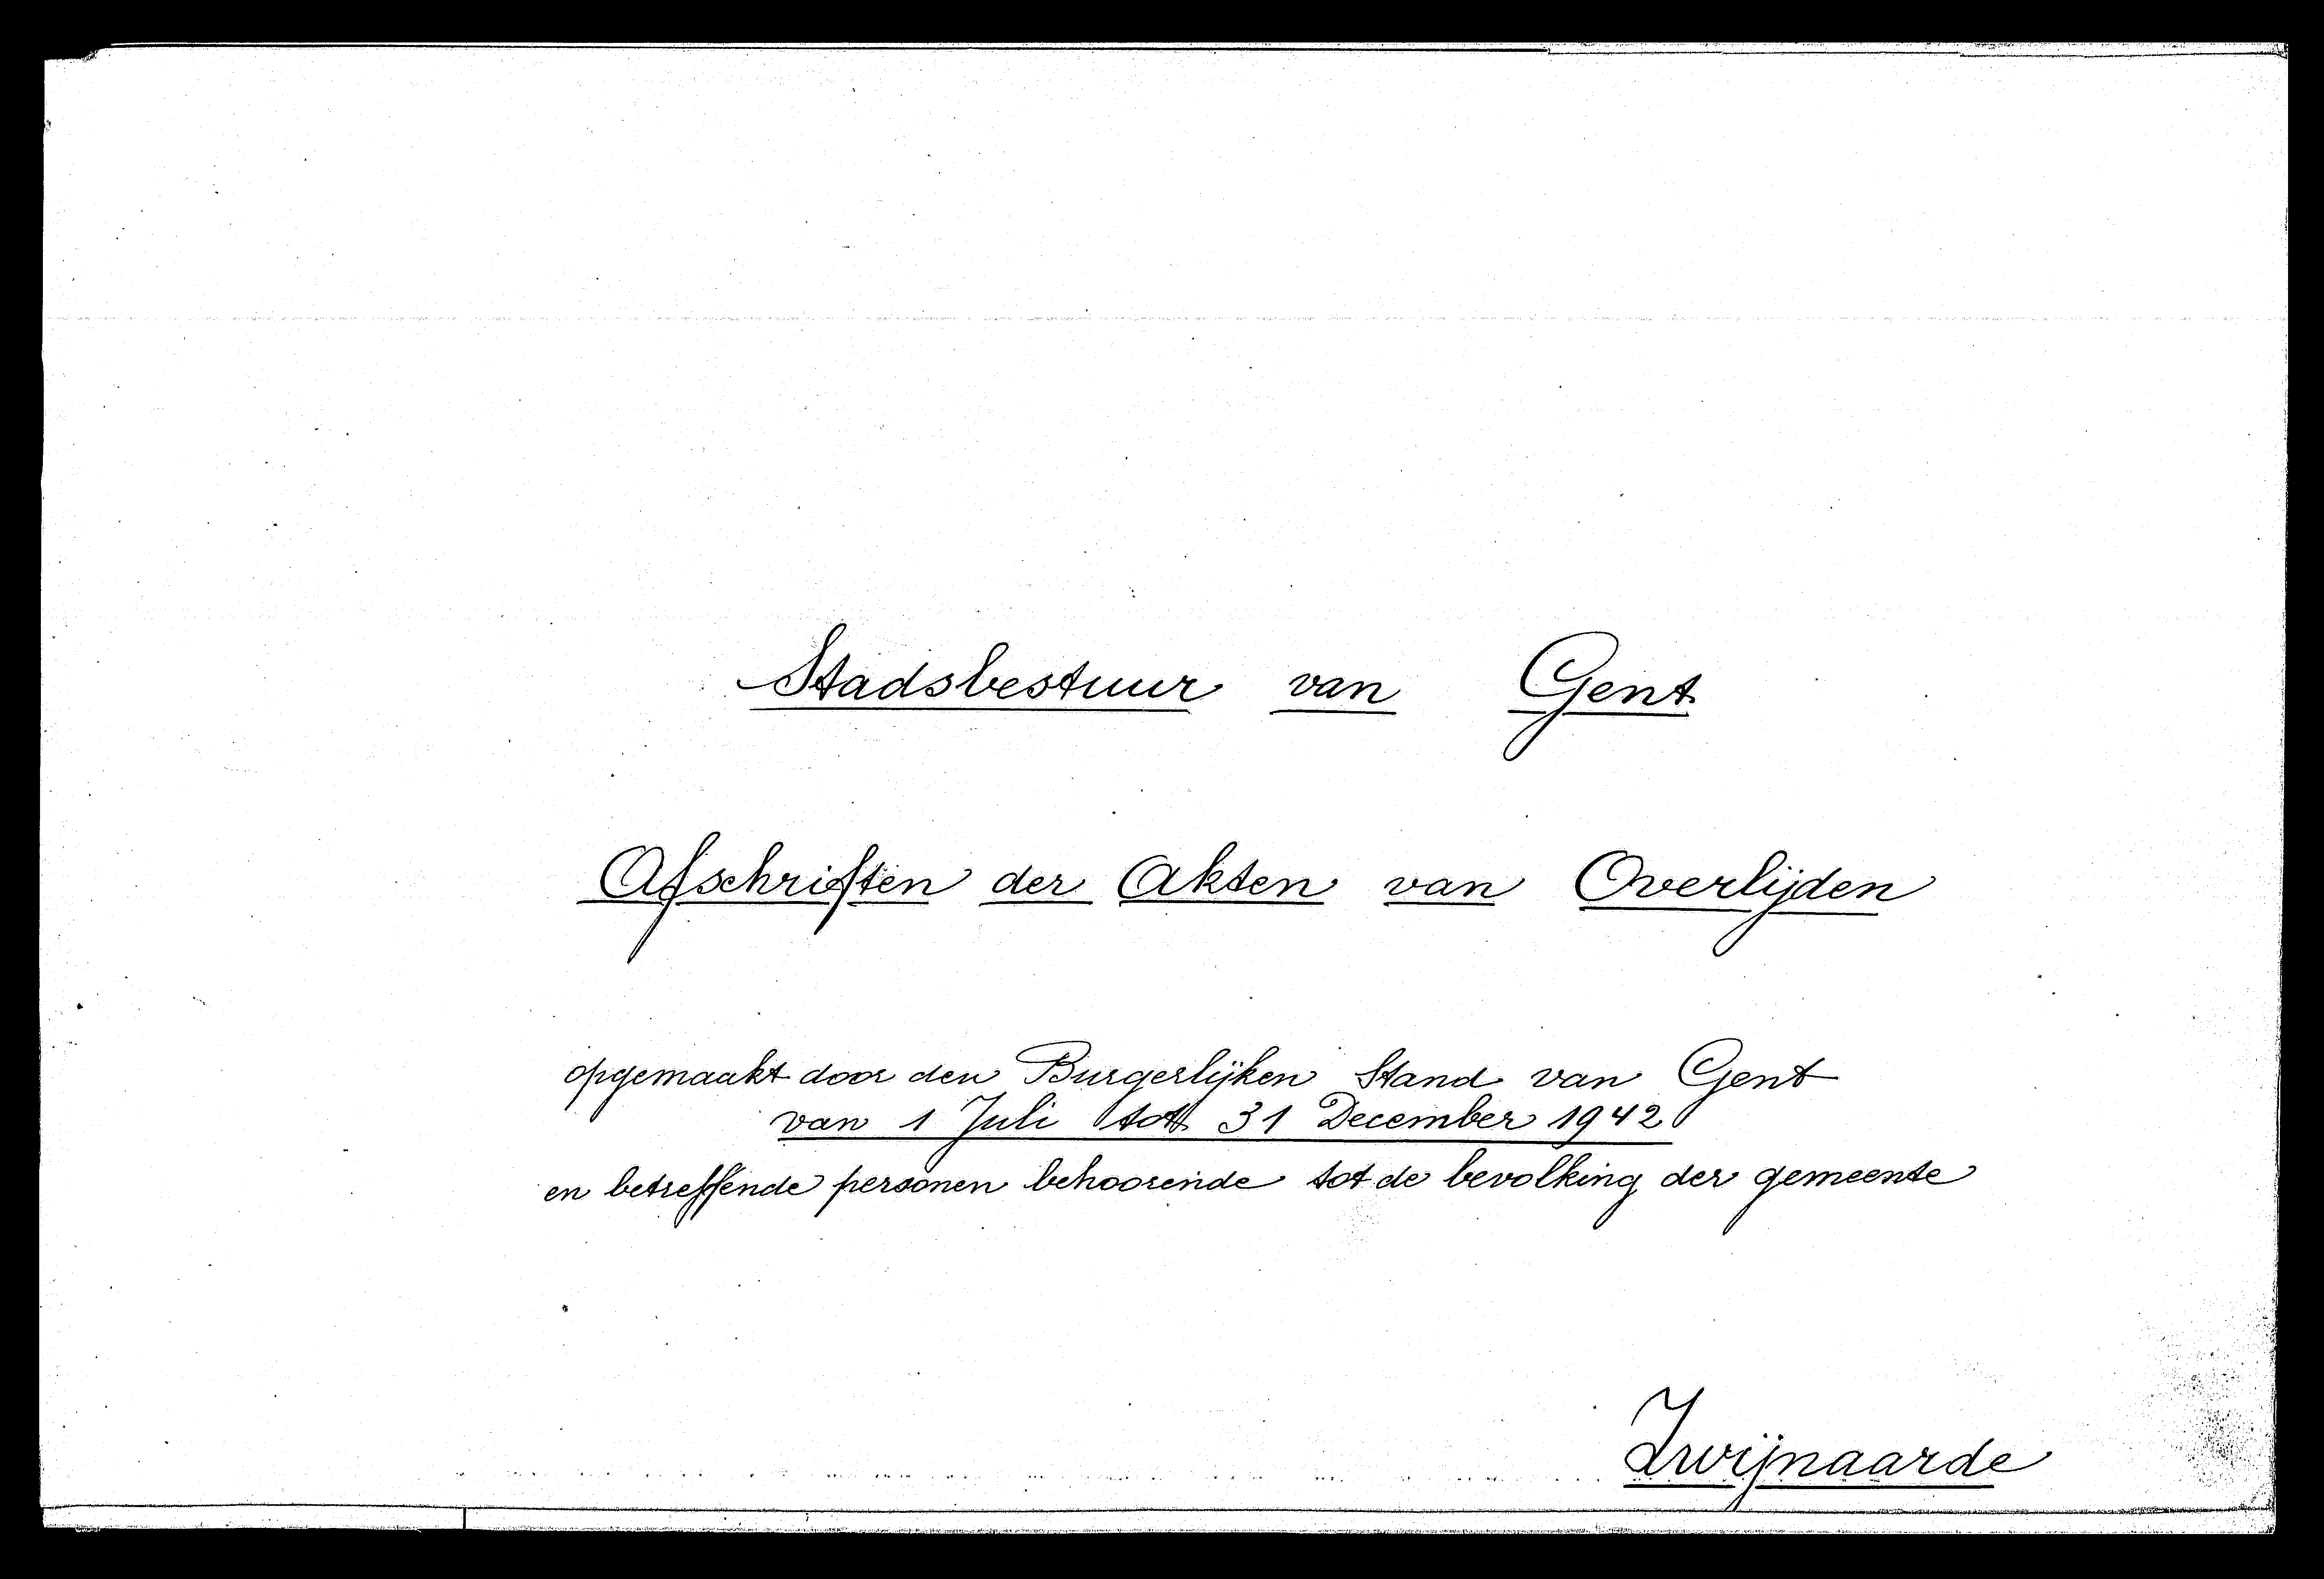 Stadsbestuur van Gent
Afschriften der Akten van Overlijden
opgemaakt door den Burgerlijken Stand van Gent
van 1 Juli tot 31 December 1942
en betreffende personen behoorende tot de bevolking der gemeente
Zwijnaarde